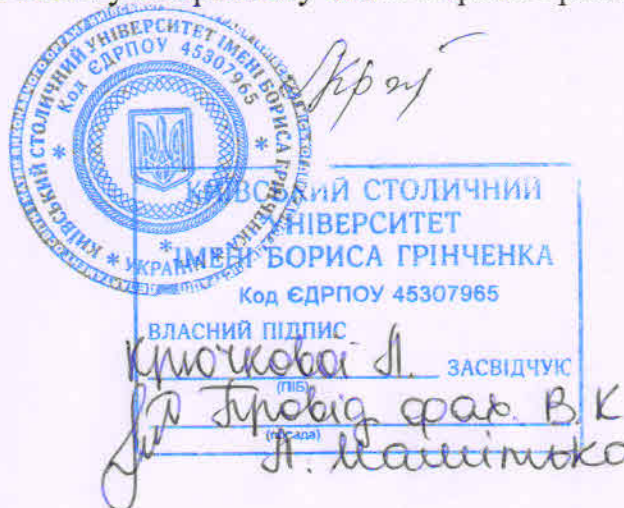 КИЇВСЬКИЙ СТОЛИЧНИЙ УНІВЕРСИТЕТ ІМЕНІ БОРИСА ГРІНЧЕНКА
* УКРАЇНА *
Код ЄДРПОУ 45307965
КИЇВСЬКИЙ СТОЛИЧНИЙ
УНІВЕРСИТЕТ
ІМЕНІ БОРИСА ГРІНЧЕНКА
Код ЄДРПОУ 45307965
ВЛАСНИЙ ПІДПИС
Крючкової Л. ЗАСВІДЧУЮ
(ПІБ)
Провід. фах. В.К
(посада)